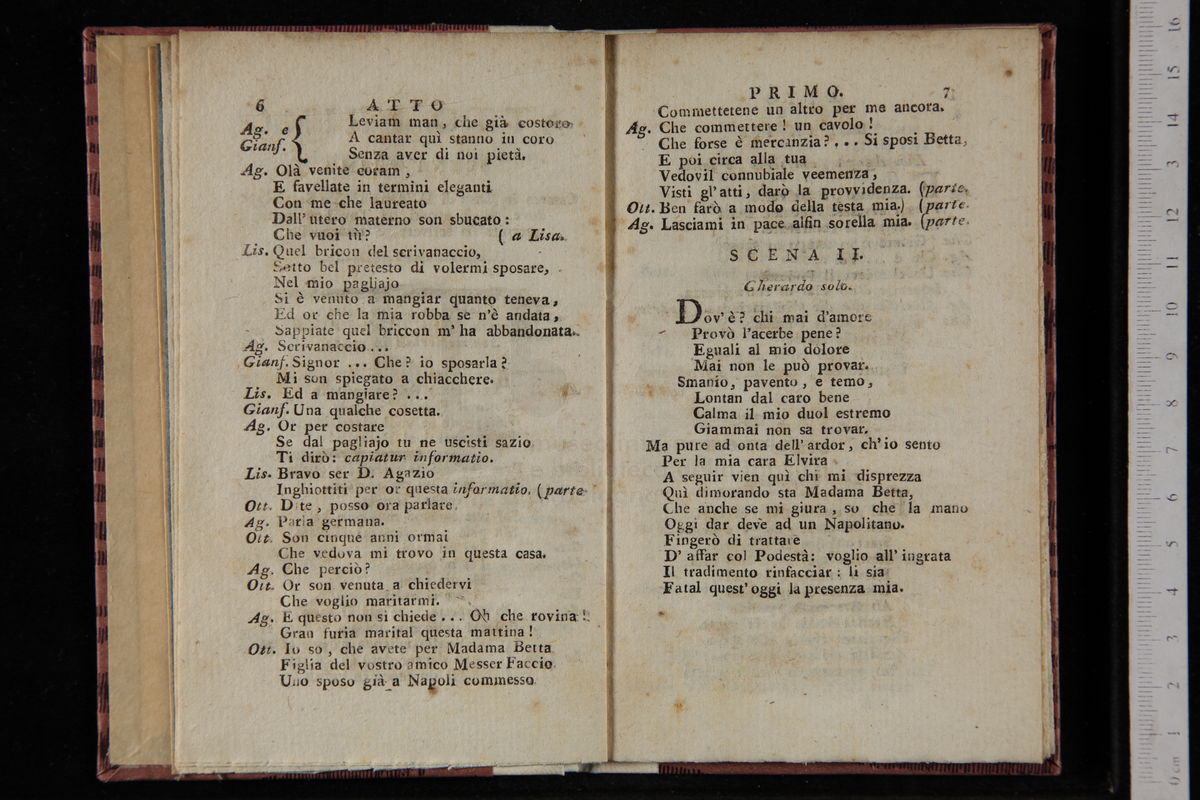 6 ATTO
Ag. e Gianf. { Leviam man, che già costoro
A cantar quì stanno in coro
Senza aver di noi pietà.
Ag. Olà venite coram,
E favellate in termini eleganti
Con me che laureato
Dall' utero materno son sbucato:
Che vuoi tù? ( a Lisa.
Lis. Quel bricon del scrivanaccio,
Sotto bel pretesto di volermi sposare,
Nel mio pagliajo
Si è venuto a mangiar quanto teneva,
Ed or che la mia robba se n'è andata,
Sappiate quel briccon m' ha abbandonata.
Ag. Scrivanaccio...
Gianf. Signor ... Che? io sposarla?
Mi son spiegato a chiacchere.
Lis. Ed a mangiare? ...
Gianf. Una qualche cosetta.
Ag. Or per costare
Se dal pagliajo tu ne uscisti sazio
Ti dirò: capiatur informatio.
Lis. Bravo ser D. Agazio
Inghiottiti per or questa informatio. (parte
Ott. Dite, posso ora parlare.
Ag. Parla germana.
Ott. Son cinque anni ormai
Che vedova mi trovo in questa casa.
Ag. Che perciò?
Ott. Or son venuta a chiedervi
Che voglio maritarmi.
Ag. E questo non si chiede... Oh che rovina!
Gran furia marital questa mattina!
Ott. Io so, che avete per Madama Betta
Figlia del vostro amico Messer Faccio
Uno sposo già a Napoli commesso
PRIMO. 7
Commettetene un altro per me ancora.
Ag. Che commettere! un cavolo!
Che forse è mercanzia?... Si sposi Betta,
E poi circa alla tua
Vedovil connubiale veemenza,
Visti gl' atti, darò la provvidenza. (parte.
Ott. Ben farò a modo della testa mia.) (parte.
Ag. Lasciami in pace alfin sorella mia. (parte.
SCENA II.
Gherardo solo.
Dov' è? chi mai d'amore
Provò l'acerbe pene?
Eguali al mio dolore
Mai non le può provar.
Smanio, pavento, e temo,
Lontan dal caro bene
Calma il mio duol estremo
Giammai non sa trovar.
Ma pure ad onta dell' ardor, ch' io sento
Per la mia cara Elvira
A seguir vien quì chi mi disprezza
Quì dimorando sta Madama Betta,
Che anche se mi giura, so che la mano
Oggi dar deve ad un Napolitano.
Fingerò di trattare
D' affar col Podestà: voglio all' ingrata
Il tradimento rinfacciar: li sia
Fatal quest' oggi la presenza mia.
0 cm 1 2 3 4 5 6 7 8 9 10 11 12 13 14 15 16